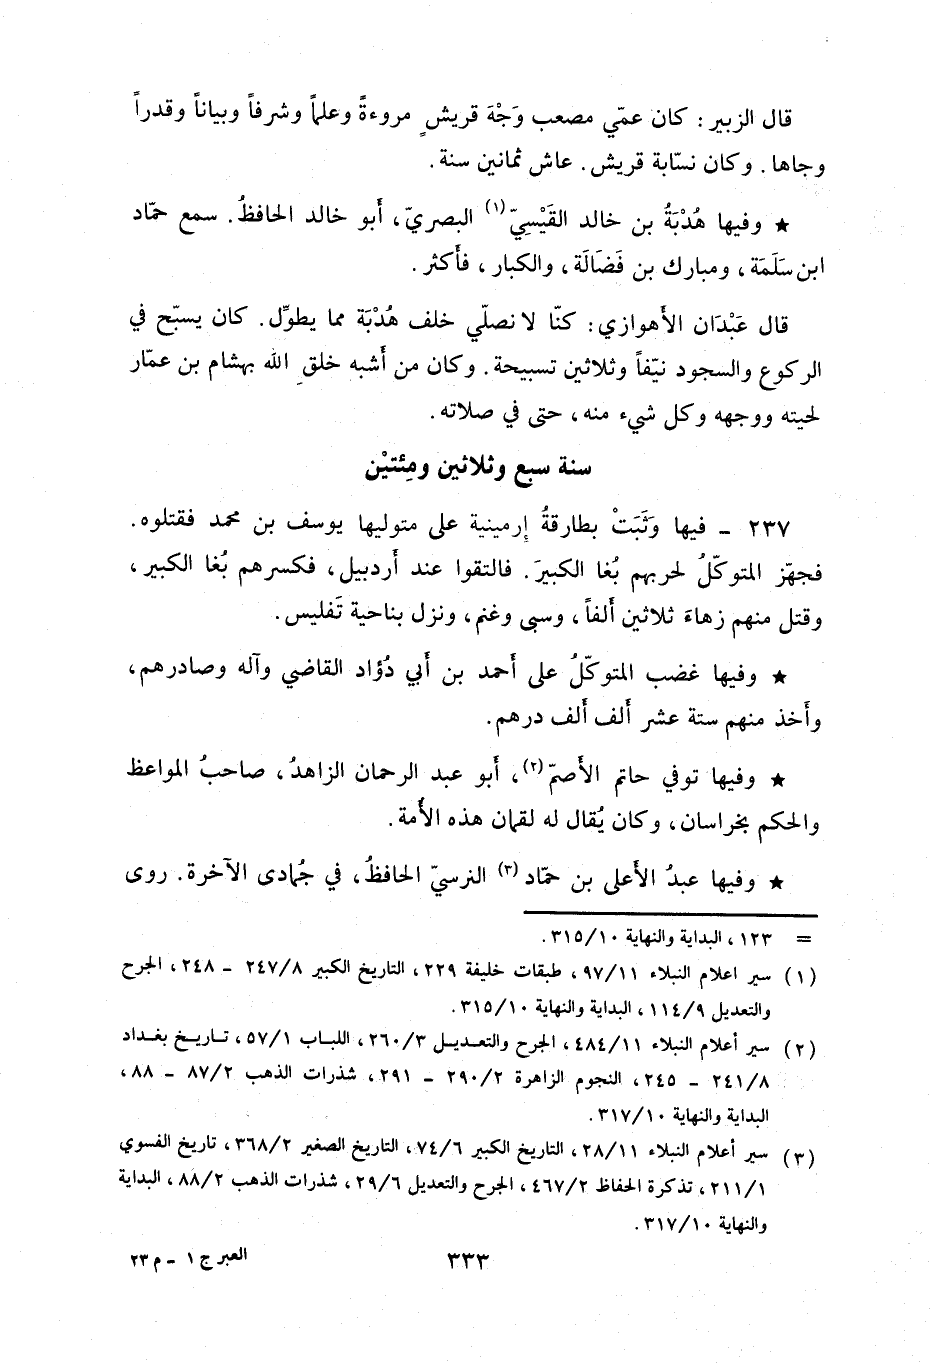 قال الزبير : كان عمّي مصعب وَجْهَ قريشٍ مروءةً وعلماً وشرفاً وبياناً وقدراً
وجاها . وكان نسّابة قريش . عاش ثمانين سنة .
★ وفيها هُدْبَةُ بن خالد القَيْسِيّ (١) البصريّ ، أبو خالد الحافظُ . سمع حمّاد
ابن سَلَمَة ، ومبارك بن فَضَالَة ، والكبار ، فأكثر .
قال عَبْدَان الأهوازي : كنّا لا نصلّي خلف هُدْبَة مما يطوِّل . كان يسبّح في
الركوع والسجود نيّفاً وثلاثين تسبيحة . وكان من أشبه خلقِ الله بهشام بن عمّار
لحيته ووجهه وكل شيء منه ، حتى في صلاته .
سنة سبع وثلاثين ومِئتيْن
٢٣٧ ـ فيها وَثَبَتْ بطارقةُ إرمينية على متوليها يوسف بن محمد فقتلوه .
فجهّز المتوكّلُ لحربهم بُغا الكبيرَ . فالتقوا عند أردبيل ، فكسرهم بُغا الكبير ،
وقتل منهم زهاءَ ثلاثين ألفاً ، وسبى وغنم ، ونزل بناحية تَفليس .
★ وفيها غضب المتوكّلُ على أحمد بن أبي دُؤاد القاضي وآله وصادرهم ،
وأخذ منهم ستة عشر ألف ألف درهم .
★ وفيها توفي حاتم الأصمّ (٢) ، أبو عبد الرحمان الزاهدُ ، صاحبُ المواعظ
والحكم بخراسان ، وكان يُقال له لقمان هذه الأُمة .
★ وفيها عبدُ الأعلى بن حمّاد (٣) النرسيّ الحافظُ ، في جُمادى الآخرة . روى
= ١٢٣ ، البداية والنهاية ٣١٥/١٠ .
(١) سير اعلام النبلاء ٩٧/١١ ، طبقات خليفة ٢٢٩ ، التاريخ الكبير ٢٤٧/٨ ـ ٢٤٨ ، الجرح
والتعديل ١١٤/٩ ، البداية والنهاية ٣١٥/١٠ .
(٢) سير أعلام النبلاء ٤٨٤/١١ ، الجرح والتعديل ٢٦٠/٣ ، اللباب ٥٧/١ ، تاريخ بغداد
٢٤١/٨ ـ ٢٤٥ ، النجوم الزاهرة ٢٩٠/٢ ـ ٢٩١ ، شذرات الذهب ٨٧/٢ ـ ٨٨ ،
البداية والنهاية ٣١٧/١٠ .
(٣) سير أعلام النبلاء ٢٨/١١ ، التاريخ الكبير ٧٤/٦ ، التاريخ الصغير ٣٦٨/٢ ، تاريخ الفسوي
٢١١/١ ، تذكرة الحفاظ ٤٦٧/٢ ، الجرح والتعديل ٢٩/٦ ، شذرات الذهب ٨٨/٢ ، البداية
والنهاية ٣١٧/١٠ .
٣٣٣
العبر ج ١ ـ م ٢٣